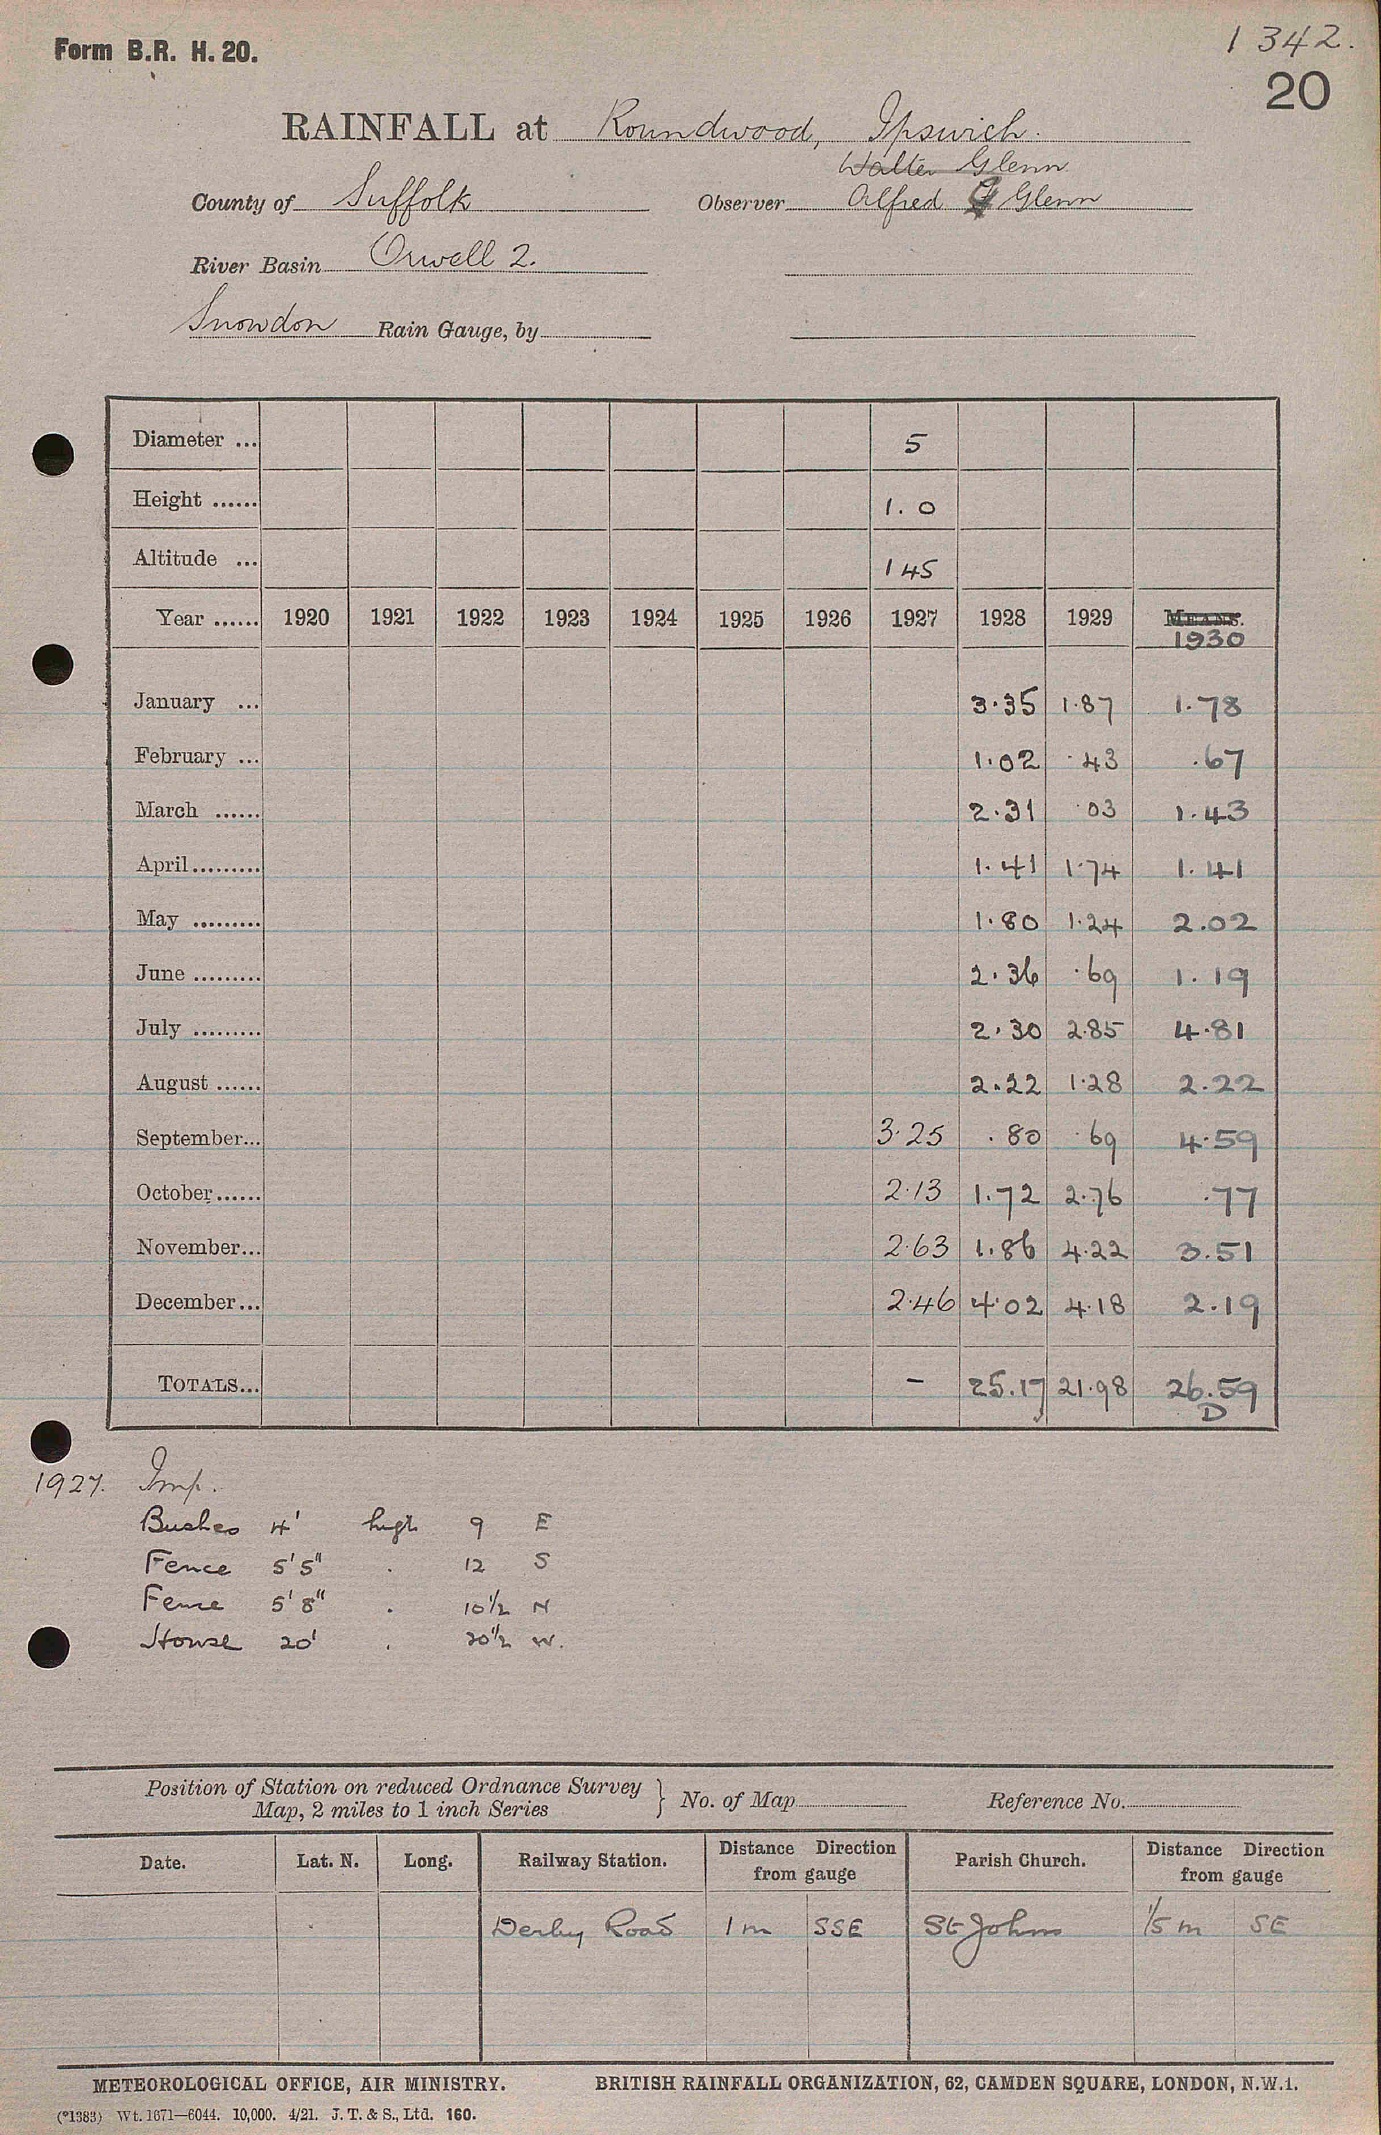 Form B.R. H. 20.
1342.
20
RAINFALL at Roundwood, Ipswich.
Walter Glenn
County of Suffolk Observer Alfred G Glenn
River Basin Orwell 2.
Snowdon Rain Gauge, by
Diameter ... 5
Height ...... 1.0
Altitude ... 145
Year ...... 1920 1921 1922 1923 1924 1925 1926 1927 1928 1929 MEANS.
1930
January ... 3.35 1.87 1.78
February ... 1.02 .43 .67
March ...... 2.31 .03 1.43
April......... 1.41 1.74 1.41
May ......... 1.80 1.24 2.02
June ......... 2.36 .69 1.19
July ......... 2.30 2.85 4.81
August ...... 2.22 1.28 2.22
September... 3.25 .80 .69 4.59
October...... 2.13 1.72 2.76 .77
November... 2.63 1.86 4.22 3.51
December... 2.46 4.02 4.18 2.19
TOTALS... – 25.17 21.98 26.59
D
1927. Imp.
Bushes 4' high 9 E
Fence 5'5" . 12 S
Fence 5'8" . 10½ N
House 20' . 20½ W.
Position of Station on reduced Ordnance Survey
Map, 2 miles to 1 inch Series } No. of Map Reference No.
Date. Lat. N. Long. Railway Station. Distance Direction from gauge Parish Church. Distance Direction from gauge
Derby Road 1 m SSE St Johns 1/5 m SE
METEOROLOGICAL OFFICE, AIR MINISTRY. BRITISH RAINFALL ORGANIZATION, 62, CAMDEN SQUARE, LONDON, N.W.1.
(*1383) Wt. 1671—6044. 10,000. 4/21. J. T. & S., Ltd. 160.